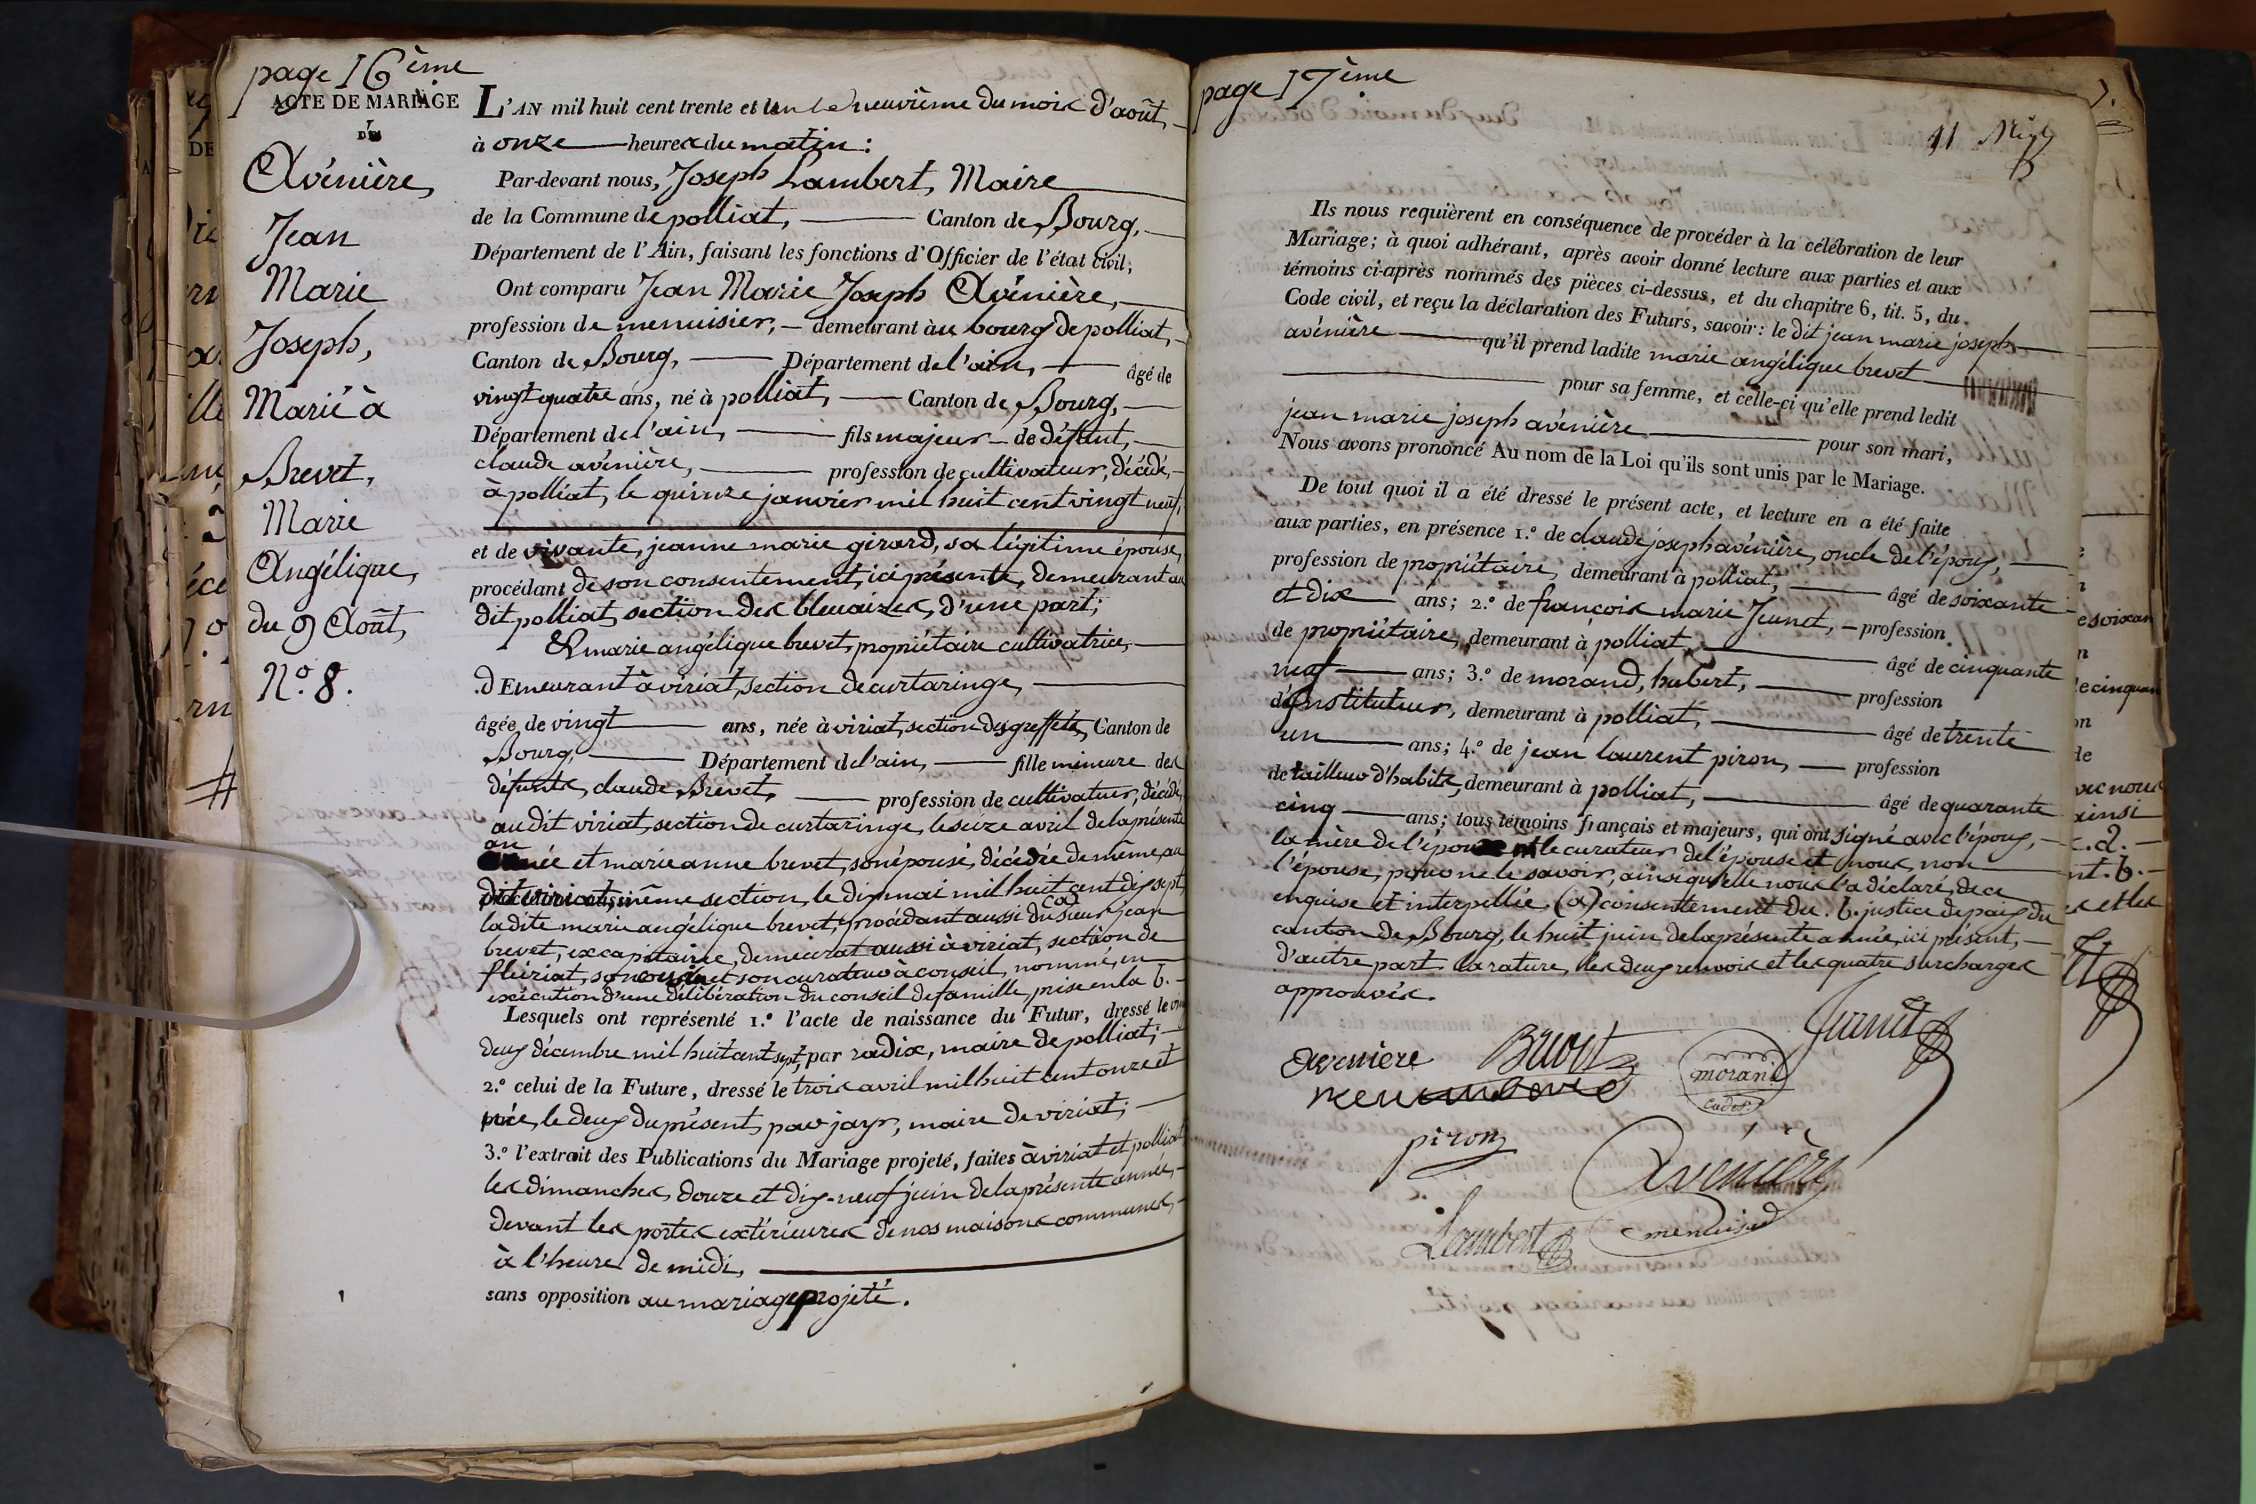 page 16ème
ACTE DE MARIAGE
DE
Avénière,
Jean
Marie
Joseph,
Marié à
Brevet,
Marie
Angélique,
du 9 Août,
N.º 8.
L'AN mil huit cent trente et un le neuvième du mois d'août,
à onze heures du matin :
Par-devant nous, Joseph Lambert, Maire
de la Commune de polliat, Canton de Bourg,
Département de l'Ain, faisant les fonctions d'Officier de l'état civil;
Ont comparu Jean Marie Joseph Avénière,
profession de menuisier, demeurant àu bourg de polliat,
Canton de Bourg, Département de l'ain, âgé de
vingt quatre ans, né à polliat, Canton de Bourg,
Département de l'ain, fils majeur de défunt,
claude avénière, profession de cultivateur, décédé,
à polliat, le quinze janvier mil huit cent vingt neuf,
et de vivante, jeanne marie girard, sa légitime épouse,
procédant de son consentement, ici présente, demeurant au
dit polliat, section des bleuaizes, d'une part;
Et marie angélique brevet, propriétaire cultivatrice,
dEmeurant à viriat, section de curtaringe,
âgée de vingt ans, née à viriat, section des greffets, Canton de
Bourg, Département de l'ain, fille mineure des
défunts, claude Brevet, profession de cultivateur, décédé,
au dit viriat, section de curtaringe, le seize avril de la présente
année et marie anne brevet, son épouse, décédée de même, au
dit viriat, même section, le dix mai mil huit cent dix sept,
la dite marie angélique brevet, procédant aussi du (a) sieur jean
brevet, ex capitaine, demeurat aussi à viriat, section de
fleiriat, son cousin et son curateur à conseil, nommé, en
exécution d'une délibération du conseil de famille, prise en la b.
Lesquels ont représenté 1.º l'acte de naissance du Futur, dressé le vingt
deux décembre mil huit cent sept, par radix, maire de polliat;
2.º celui de la Future, dressé le trois avril mil huit cent onze et
le deux du présent, par jayr, maire de viriat;
3.º l'extrait des Publications du Mariage projeté, faites à viriat et polliat
les dimanches, douze et dix-neuf juin de la présente année,
devant les portes extérieures de nos maisons communes,
à l'heure de midi,
sans opposition au mariage projeté.
page 17ème
11
Ils nous requièrent en conséquence de procéder à la célébration de leur
Mariage; à quoi adhérant, après avoir donné lecture aux parties et aux
témoins ci-après nommés des pièces ci-dessus, et du chapitre 6, tit. 5, du
Code civil, et reçu la déclaration des Futurs, savoir: le dit jean marie joseph
avénière qu'il prend ladite marie angélique brevet
pour sa femme, et celle-ci qu'elle prend ledit
jean marie joseph avénière pour son mari,
Nous avons prononcé Au nom de la Loi qu'ils sont unis par le Mariage.
De tout quoi il a été dressé le présent acte, et lecture en a été faite
aux parties, en présence 1.º de claude joseph avénière, oncle de l'époux,
profession de propriétaire, demeurant à polliat, âgé de soixante
et dix ans; 2.º de françois marie Jeunet, profession
de propriétaire, demeurant à polliat, âgé de cinquante
neuf ans; 3.º de morand, hubert, profession
d'instituteur, demeurant à polliat, âgé de trente
un ans; 4.º de jean laurent piron, profession
de tailleur d'habits, demeurant à polliat, âgé de quarante
cinq ans; tous témoins français et majeurs, qui ont signé avec l'époux,
la mère de l'époux et le curateur de l'épouse et nous, non
l'épouse, pour ne le savoir, ainsi qu'elle nous l'a déclaré, de ce
enquise et interpellée. (a) consentement du. b. justice de paix du
canton de Bourg, le huit juin de la présente année, ici présent,
d'autre part. la rature, les deux renvois et les quatre surcharges
approuvés.
avenière Brevet Jeunet
morand
cadet
piron
Avenière
menuisier
Lambert